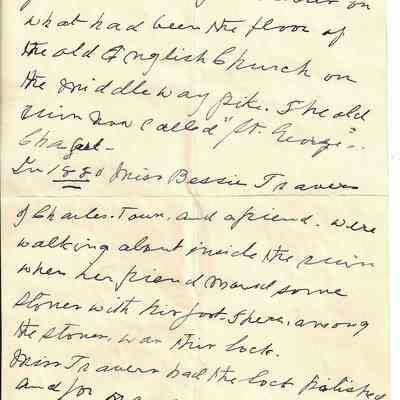 what had been the floor of
the old English Church on
the middle way pike. The old
ruin now called "St. George's"
Chapel—
In 1880 Miss Bessie Travers
of Charles-Town, and a friend. were
walking about inside the ruin
when her friend moved some
stones with his foot. There, among
the stones, was this lock.
Miss Travers had the lock polished
and for